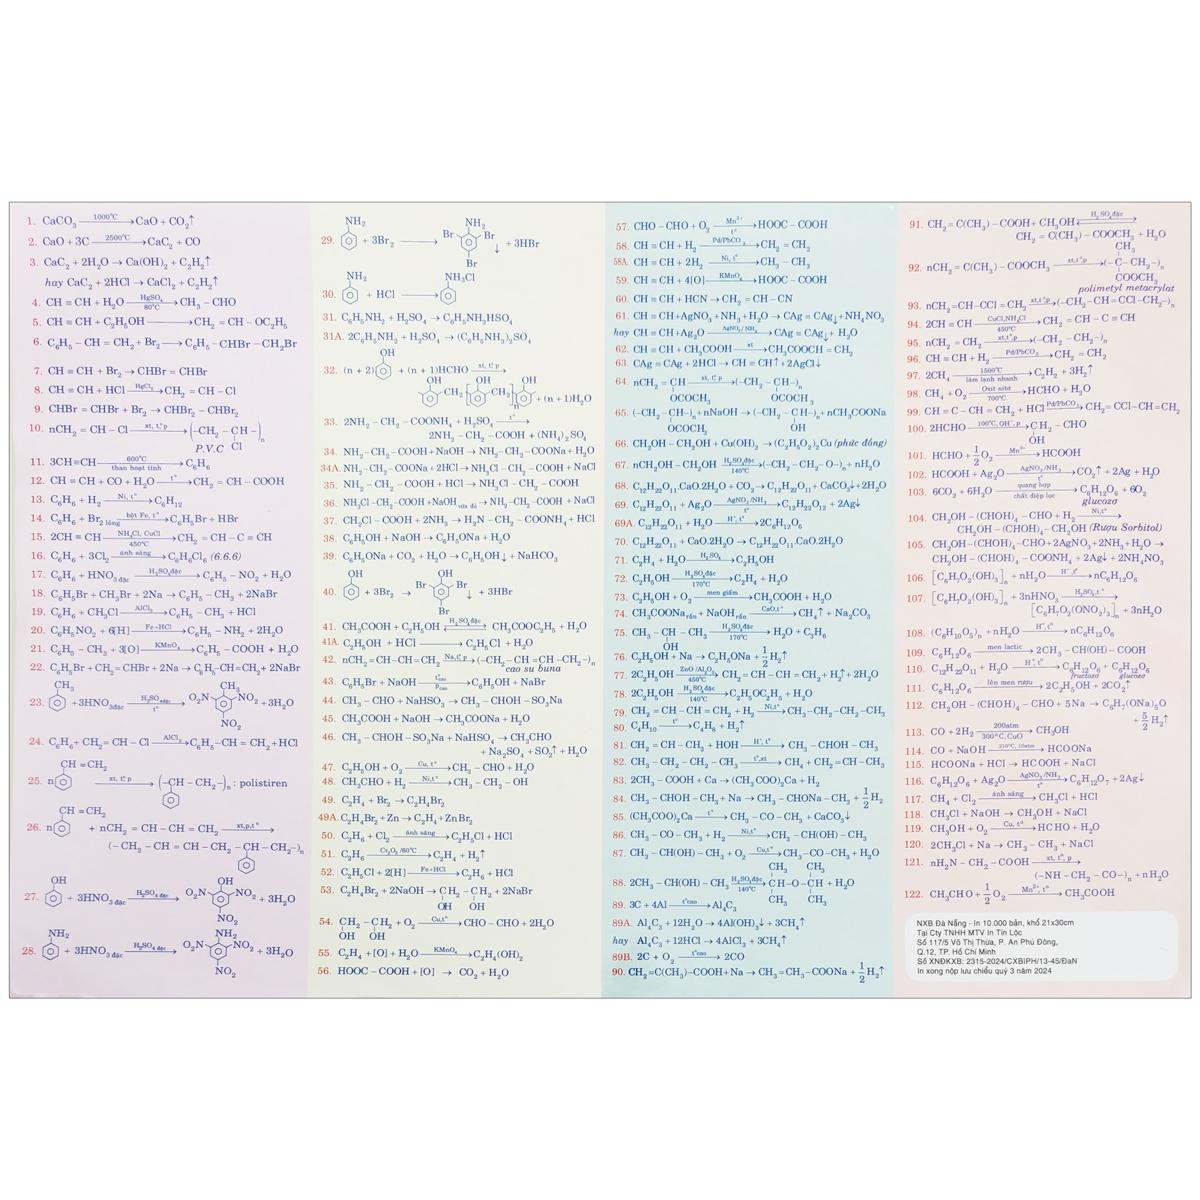 1. CaCO₃ —1000°C→ CaO + CO₂↑
2. CaO + 3C —2500°C→ CaC₂ + CO
3. CaC₂ + 2H₂O → Ca(OH)₂ + C₂H₂↑
hay CaC₂ + 2HCl → CaCl₂ + C₂H₂↑
4. CH ≡ CH + H₂O —HgSO₄ 80°C→ CH₃ − CHO
5. CH ≡ CH + C₂H₅OH → CH₂ = CH − OC₂H₅
6. C₆H₅ − CH = CH₂ + Br₂ → C₆H₅ − CHBr − CH₂Br
7. CH ≡ CH + Br₂ → CHBr = CHBr
8. CH ≡ CH + HCl —HgCl₂→ CH₂ = CH − Cl
9. CHBr = CHBr + Br₂ → CHBr₂ − CHBr₂
10. nCH₂ = CH − Cl —xt, t°, p→ (−CH₂ − CH−)ₙ
P.V.C Cl
11. 3CH≡CH —600°C than hoạt tính→ C₆H₆
12. CH ≡ CH + CO + H₂O —t°→ CH₂ = CH − COOH
13. C₆H₆ + H₂ —Ni, t°→ C₆H₁₂
14. C₆H₆ + Br₂ lỏng —bột Fe, t°→ C₆H₅Br + HBr
15. 2CH ≡ CH —NH₄Cl, CuCl 450°C→ CH₂ = CH − C ≡ CH
16. C₆H₆ + 3Cl₂ —ánh sáng→ C₆H₆Cl₆ (6.6.6)
17. C₆H₆ + HNO₃ đặc —H₂SO₄đặc→ C₆H₅ − NO₂ + H₂O
18. C₆H₅Br + CH₃Br + 2Na → C₆H₅ − CH₃ + 2NaBr
19. C₆H₆ + CH₃Cl —AlCl₃→ C₆H₅ − CH₃ + HCl
20. C₆H₅NO₂ + 6[H] —Fe+HCl→ C₆H₅ − NH₂ + 2H₂O
21. C₆H₅ − CH₃ + 3[O] —KMnO₄→ C₆H₅ − COOH + H₂O
22. C₆H₅Br + CH₂ = CHBr + 2Na → C₆H₅−CH=CH₂ + 2NaBr
23. CH₃ + 3HNO₃đặc —H₂SO₄ t°→ O₂N CH₃ NO₂ NO₂ + 3H₂O
24. C₆H₆ + CH₂ = CH − Cl —AlCl₃→ C₆H₅−CH = CH₂+HCl
25. n CH = CH₂ —xt, t°, p→ (−CH − CH₂−)ₙ : polistiren
26. n CH = CH₂ + nCH₂ = CH − CH = CH₂ —xt,p,t°→
(−CH₂ − CH = CH − CH₂ − CH − CH₂−)ₙ
27. OH + 3HNO₃ đặc —H₂SO₄ đặc→ O₂N OH NO₂ NO₂ + 3H₂O
28. NH₂ + 3HNO₃ đặc —H₂SO₄ đặc→ O₂N NH₂ NO₂ NO₂ + 3H₂O
29. NH₂ + 3Br₂ → Br NH₂ Br Br ↓ + 3HBr
30. NH₂ + HCl → NH₃Cl
31. C₆H₅NH₂ + H₂SO₄ → C₆H₅NH₃HSO₄
31A. 2C₆H₅NH₂ + H₂SO₄ → (C₆H₅NH₃)₂SO₄
32. (n + 2) OH + (n + 1)HCHO —xt, t°, p→
OH CH₂ [OH CH₂]ₙ OH + (n + 1)H₂O
33. 2NH₂ − CH₂ − COONH₄ + H₂SO₄ —t°→
2NH₂ − CH₂ − COOH + (NH₄)₂SO₄
34. NH₂−CH₂−COOH + NaOH → NH₂−CH₂−COONa + H₂O
34A. NH₂−CH₂−COONa + 2HCl → NH₃Cl−CH₂−COOH + NaCl
35. NH₂ − CH₂ − COOH + HCl → NH₃Cl − CH₂ − COOH
36. NH₃Cl−CH₂−COOH +NaOH vừa đủ → NH₂−CH₂−COOH + NaCl
37. CH₂Cl − COOH + 2NH₃ → H₂N − CH₂ − COONH₄ + HCl
38. C₆H₅OH + NaOH → C₆H₅ONa + H₂O
39. C₆H₅ONa + CO₂ + H₂O → C₆H₅OH↓ + NaHCO₃
40. OH + 3Br₂ → Br OH Br Br ↓ + 3HBr
41. CH₃COOH + C₂H₅OH —H₂SO₄đặc⇌ CH₃COOC₂H₅ + H₂O
41A. C₂H₅OH + HCl → C₂H₅Cl + H₂O
42. nCH₂=CH−CH=CH₂ —Na,t°,p→ (−CH₂−CH=CH−CH₂−)ₙ
cao su buna
43. C₆H₅Br + NaOH —t°cao Pcao→ C₆H₅OH + NaBr
44. CH₃ − CHO + NaHSO₃ → CH₃ − CHOH − SO₃Na
45. CH₃COOH + NaOH → CH₃COONa + H₂O
46. CH₃ − CHOH − SO₃Na + NaHSO₄ → CH₃CHO
+ Na₂SO₄ + SO₂↑ + H₂O
47. C₂H₅OH + O₂ —Cu, t°→ CH₃ − CHO + H₂O
48. CH₃CHO + H₂ —Ni,t°→ CH₃ − CH₂ − OH
49. C₂H₄ + Br₂ → C₂H₄Br₂
49A. C₂H₄Br₂ + Zn → C₂H₄ + ZnBr₂
50. C₂H₆ + Cl₂ —ánh sáng→ C₂H₅Cl + HCl
51. C₂H₆ —Cr₂O₃ /60°C→ C₂H₄ + H₂↑
52. C₂H₅Cl + 2[H] —Fe+HCl→ C₂H₆ + HCl
53. C₂H₄Br₂ + 2NaOH → CH₂ − CH₂ + 2NaBr
OH OH
54. CH₂ − CH₂ + O₂ —Cu,t°→ CHO − CHO + 2H₂O
OH OH
55. C₂H₄ + [O] + H₂O —KMnO₄→ C₂H₄(OH)₂
56. HOOC − COOH + [O] → CO₂ + H₂O
57. CHO − CHO + O₂ —Mn²⁺ t°→ HOOC − COOH
58. CH ≡ CH + H₂ —Pd/PbCO₃→ CH₂ = CH₂
58A. CH ≡ CH + 2H₂ —Ni, t°→ CH₃ − CH₃
59. CH ≡ CH + 4[O] —KMnO₄→ HOOC − COOH
60. CH ≡ CH + HCN → CH₂ = CH − CN
61. CH ≡ CH + AgNO₃ + NH₃ + H₂O → CAg ≡ CAg↓ + NH₄NO₃
hay CH ≡ CH + Ag₂O —AgNO₃/ NH₃→ CAg ≡ CAg↓ + H₂O
62. CH ≡ CH + CH₃COOH —xt→ CH₃COOCH = CH₂
63. CAg ≡ CAg + 2HCl → CH ≡ CH↑ + 2AgCl↓
64. nCH₂ = CH —xt, t°, p→ (−CH₂ − CH−)ₙ
OCOCH₃ OCOCH₃
65. (−CH₂ − CH−)ₙ + nNaOH → (−CH₂ − CH−)ₙ + nCH₃COONa
OCOCH₃ OH
66. CH₂OH − CH₂OH + Cu(OH)₂ → (C₂H₅O₂)₂Cu (phức đồng)
67. nCH₂OH − CH₂OH —H₂SO₄đặc 140°C→ (−CH₂ − CH₂ − O−)ₙ + nH₂O
68. C₁₂H₂₂O₁₁.CaO.2H₂O + CO₂ → C₁₂H₂₂O₁₁ + CaCO₃↓+2H₂O
69. C₁₂H₂₂O₁₁ + Ag₂O —AgNO₃ /NH₃→ C₁₂H₂₂O₁₂ + 2Ag↓
69A. C₁₂H₂₂O₁₁ + H₂O —H⁺, t°→ 2C₆H₁₂O₆
70. C₁₂H₂₂O₁₁ + CaO.2H₂O → C₁₂H₂₂O₁₁.CaO.2H₂O
71. C₂H₄ + H₂O —H₂SO₄→ C₂H₅OH
72. C₂H₅OH —H₂SO₄đặc 170°C→ C₂H₄ + H₂O
73. C₂H₅OH + O₂ —men giấm→ CH₃COOH + H₂O
74. CH₃COONa rắn + NaOH rắn —CaO,t°→ CH₄↑ + Na₂CO₃
75. CH₃ − CH − CH₃ —H₂SO₄đặc 170°C→ H₂O + C₃H₆
OH
76. C₂H₅OH + Na → C₂H₅ONa + 1/2 H₂↑
77. 2C₂H₅OH —ZnO /Al₂O₃ 450°C→ CH₂ = CH − CH = CH₂ + H₂↑ + 2H₂O
78. 2C₂H₅OH —H₂SO₄ đặc 140°C→ C₂H₅OC₂H₅ + H₂O
79. CH₂ = CH − CH = CH₂ + H₂ —Ni,t°→ CH₃−CH₂−CH₂−CH₃
80. C₄H₁₀ —t°→ C₄H₈ + H₂↑
81. CH₂ = CH − CH₃ + HOH —H⁺, t°→ CH₃ − CHOH − CH₃
82. CH₃ − CH₂ − CH₂ − CH₃ —t°,xt→ CH₄ + CH₂ = CH − CH₃
83. 2CH₃ − COOH + Ca → (CH₃COO)₂Ca + H₂
84. CH₃ − CHOH − CH₃ + Na → CH₃ − CHONa − CH₃ + 1/2 H₂
85. (CH₃COO)₂Ca → CH₃ − CO − CH₃ + CaCO₃↓
86. CH₃ − CO − CH₃ + H₂ —Ni,t°→ CH₃ − CH(OH) − CH₃
87. CH₃ − CH(OH) − CH₃ + O₂ —Cu,t°→ CH₃−CO−CH₃ + H₂O
88. 2CH₃ − CH(OH) − CH₃ —H₂SO₄đặc 140°C→ CH₃ CH₃ CH−O−CH CH₃ CH₃ + H₂O
89. 3C + 4Al —t°cao→ Al₄C₃
89A. Al₄C₃ + 12H₂O → 4Al(OH)₃↓ + 3CH₄↑
hay Al₄C₃ + 12HCl → 4AlCl₃ + 3CH₄↑
89B. 2C + O₂ —t°cao→ 2CO
90. CH₂=C(CH₃)−COOH+Na → CH₃=CH−COONa + 1/2 H₂↑
91. CH₂ = C(CH₃) − COOH + CH₃OH —H₂SO₄đặc⇌
CH₂ = C(CH₃) − COOCH₃ + H₂O
92. nCH₂ = C(CH₃) − COOCH₃ —xt,t°,p→ (−C(CH₃)(COOCH₃) − CH₂−)ₙ
polimetyl metacrylat
93. nCH₂=CH−CCl = CH₂ —xt,t°,p→ (−CH₂−CH=CCl−CH₂−)ₙ
94. 2CH ≡ CH —CuCl,NH₄Cl 450°C→ CH₂ = CH − C ≡ CH
95. nCH₂ = CH₂ —xt,t°,p→ (−CH₂ − CH₂−)ₙ
96. CH ≡ CH + H₂ —Pd/PbCO₃→ CH₂ = CH₂
97. 2CH₄ —1500°C làm lạnh nhanh→ C₂H₂ + 3H₂↑
98. CH₄ + O₂ —Oxit nitơ 700°C→ HCHO + H₂O
99. CH ≡ C − CH = CH₂ + HCl —Pd/PbCO₃→ CH₂=CCl−CH=CH₂
100. 2HCHO —100°C, OH⁻, p→ CH₂ − CHO
OH
101. HCHO + 1/2 O₂ —Mn²⁺→ HCOOH
102. HCOOH + Ag₂O —AgNO₃ /NH₃ t°→ CO₂↑ + 2Ag + H₂O
103. 6CO₂ + 6H₂O —quang hợp chất diệp lục→ C₆H₁₂O₆ + 6O₂
glucozơ
104. CH₂OH − (CHOH)₄ − CHO + H₂ —Ni,t°→
CH₂OH − (CHOH)₄ − CH₂OH (Rượu Sorbitol)
105. CH₂OH − (CHOH)₄−CHO+2AgNO₃+2NH₃+H₂O →
CH₂OH − (CHOH)₄ − COONH₄ + 2Ag↓ + 2NH₄NO₃
106. [C₆H₇O₂(OH)₃]ₙ + nH₂O —H⁺, t°→ nC₆H₁₂O₆
107. [C₆H₇O₂(OH)₃]ₙ + 3nHNO₃ —H₂SO₄,t°→
[C₆H₇O₂(ONO₂)₃]ₙ + 3nH₂O
108. (C₆H₁₀O₅)ₙ + nH₂O —H⁺, t°→ nC₆H₁₂O₆
109. C₆H₁₂O₆ —men lactic→ 2CH₃ − CH(OH) − COOH
110. C₁₂H₂₂O₁₁ + H₂O —H⁺, t°→ C₆H₁₂O₆ + C₆H₁₂O₆
fructozơ glucozơ
111. C₆H₁₂O₆ —lên men rượu→ 2C₂H₅OH + 2CO₂↑
112. CH₂OH − (CHOH)₄ − CHO + 5Na → C₆H₇(ONa)₅O
+ 5/2 H₂↑
113. CO + 2H₂ —200atm 300°C, CuO→ CH₃OH
114. CO + NaOH —210°C, 10atm→ HCOONa
115. HCOONa + HCl → HCOOH + NaCl
116. C₆H₁₂O₆ + Ag₂O —AgNO₃ /NH₃ t°→ C₆H₁₂O₇ + 2Ag↓
117. CH₄ + Cl₂ —ánh sáng→ CH₃Cl + HCl
118. CH₃Cl + NaOH → CH₃OH + NaCl
119. CH₃OH + O₂ —Cu, t°→ HCHO + H₂O
120. 2CH₃Cl + Na → CH₃ − CH₃ + NaCl
121. nH₂N − CH₂ − COOH —xt, t°, p→
(−NH − CH₂ − CO−)ₙ + nH₂O
122. CH₃CHO + 1/2 O₂ —Mn²⁺, t°→ CH₃COOH
NXB Đà Nẵng - In 10.000 bản, khổ 21x30cm
Tại Cty TNHH MTV In Tín Lộc
Số 117/5 Võ Thị Thừa, P. An Phú Đông,
Q.12, TP. Hồ Chí Minh
Số XNĐKXB: 2315-2024/CXBIPH/13-45/ĐaN
In xong nộp lưu chiểu quý 3 năm 2024